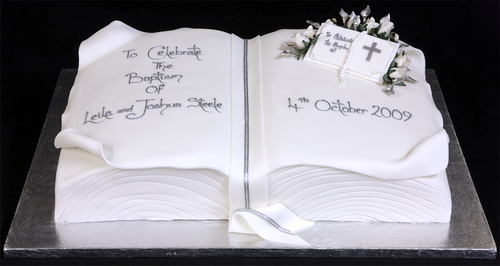 To Celebrate
The
Baptism
Of
Leila and Joshua Steele
To Celebrate
The Baptism
4th October 2009